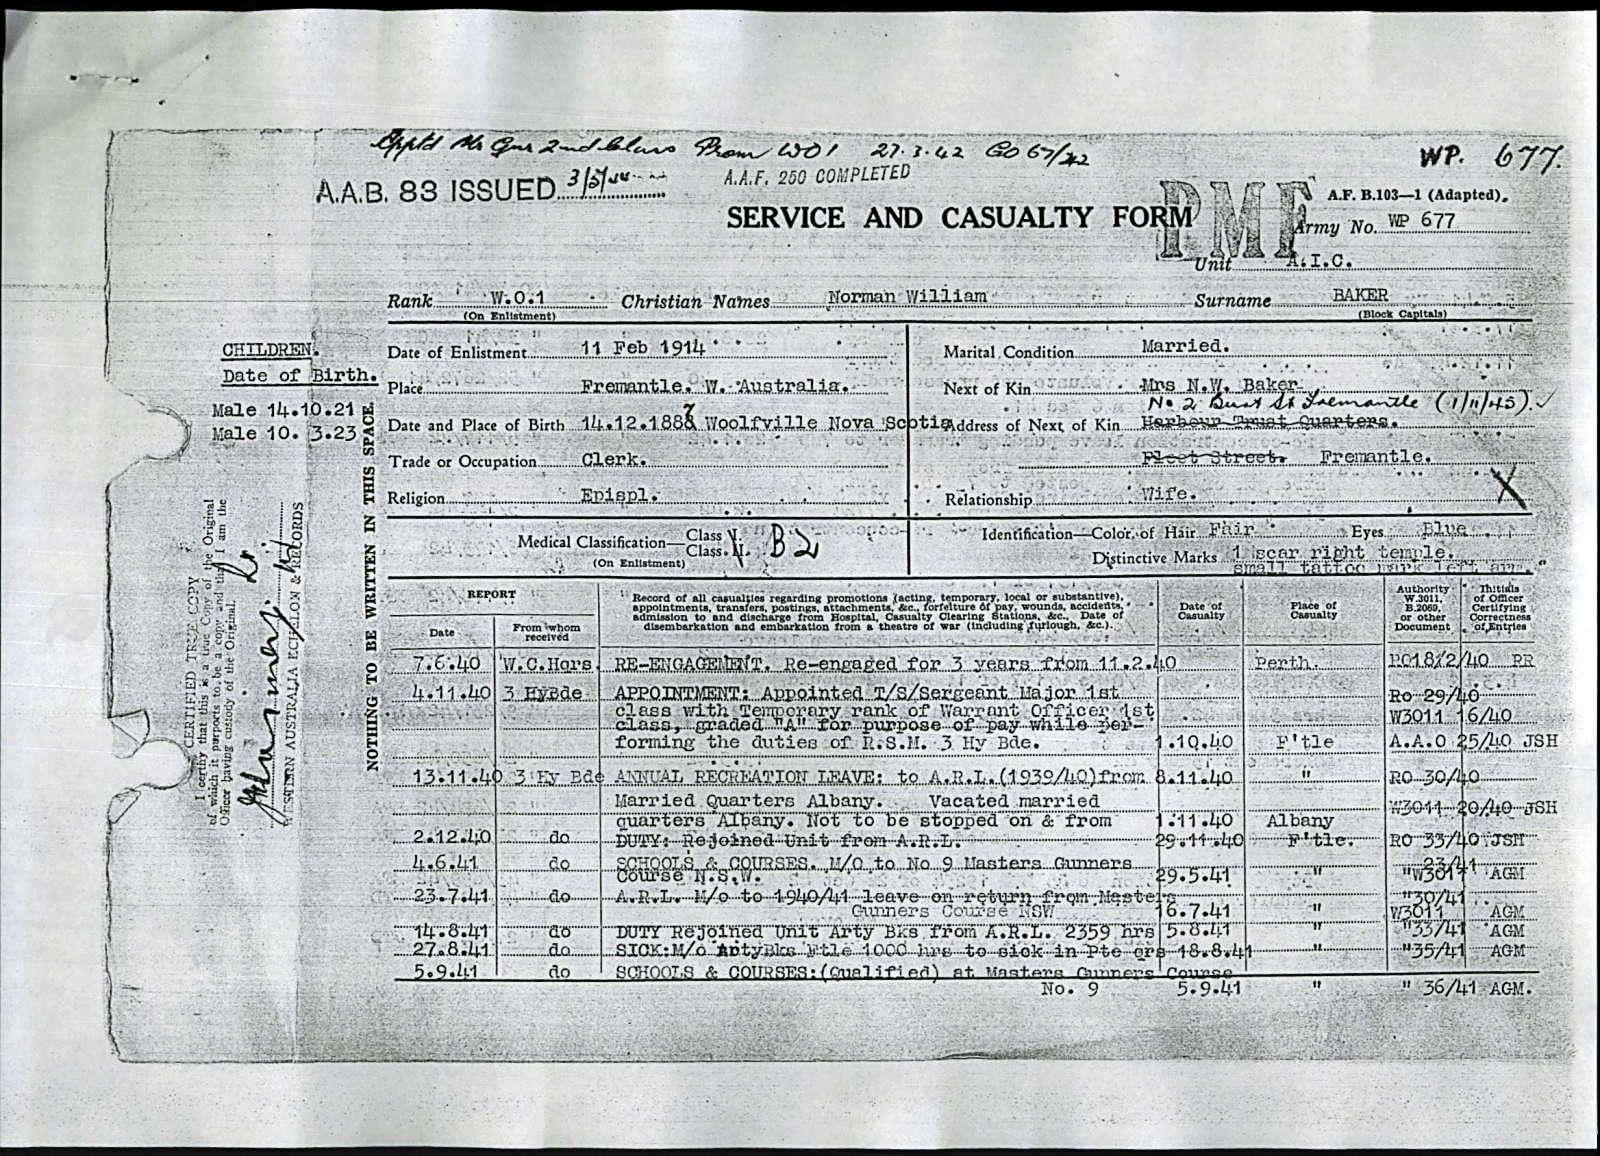 Apptd Mr Gnr 2nd Class Prom WO1 27.3.42 GO 67/42
WP. 677.
A.A.B. 83 ISSUED 3/5/44
A.A.F. 250 COMPLETED
PMF
A.F. B.103—1 (Adapted).
SERVICE AND CASUALTY FORM
Army No. WP 677
Unit A.I.C.
Rank W.O.1 Christian Names Norman William Surname BAKER
(On Enlistment) (Block Capitals)
CHILDREN.
Date of Birth.
Male 14.10.21
Male 10. 3.23
Date of Enlistment 11 Feb 1914
Place Fremantle. W. Australia.
Date and Place of Birth 14.12.1887 Woolfville Nova Scotia
Trade or Occupation Clerk.
Religion Epispl.
Marital Condition Married.
Next of Kin Mrs N.W. Baker
No 2 Fremantle (1/11/45).
Address of Next of Kin Harbour Trust Quarters.
Fleet Street. Fremantle.
Relationship Wife.
X
Medical Classification—Class I.
Class II. B2
(On Enlistment)
Identification—Color of Hair Fair Eyes Blue
Distinctive Marks 1 scar right temple.
small tattoo mark left arm.
NOTHING TO BE WRITTEN IN THIS SPACE.
CERTIFIED TRUE COPY
I certify that this is a true Copy of the Original
of which it purports to be a copy and that I am the
Officer having custody of the Original.
WESTERN AUSTRALIA ECHELON & RECORDS
REPORT
Date
From whom received
Record of all casualties regarding promotions (acting, temporary, local or substantive),
appointments, transfers, postings, attachments, &c., forfeiture of pay, wounds, accidents,
admission to and discharge from Hospital, Casualty Clearing Stations, &c., Date of
disembarkation and embarkation from a theatre of war (including furlough, &c.).
Date of Casualty
Place of Casualty
Authority W.3011, B.2069, or other Document
Initials of Officer Certifying Correctness of Entries
7.6.40 W.C.Hqrs. RE-ENGAGEMENT. Re-engaged for 3 years from 11.2.40 Perth. RO18/2/40 RR
4.11.40 3 HyBde APPOINTMENT: Appointed T/S/Sergeant Major 1st Ro 29/40
class with Temporary rank of Warrant Officer 1st W3011 16/40
class, graded "A" for purpose of pay while per-
forming the duties of R.S.M. 3 Hy Bde. 1.10.40 F'tle A.A.O 25/40 JSH
13.11.40 3 Hy Bde ANNUAL RECREATION LEAVE: to A.R.L.(1939/40)from 8.11.40 " RO 30/40
Married Quarters Albany. Vacated married W3011 20/40 JSH
quarters Albany. Not to be stopped on & from 1.11.40 Albany
2.12.40 do DUTY: Rejoined Unit from A.R.L. 29.11.40 F'tle. RO 33/40 JSH
4.6.41 do SCHOOLS & COURSES. M/O to No 9 Masters Gunners " 23/41
Course N.S.W. 29.5.41 " "W3011 AGM
23.7.41 do A.R.L. M/o to 1940/41 leave on return from Masters "30/41
Gunners Course NSW 16.7.41 " W3011 AGM
14.8.41 do DUTY Rejoined Unit Arty Bks from A.R.L. 2359 hrs 5.8.41 " "33/41 AGM
27.8.41 do SICK:M/o ArtyBks Ftle 1000 hrs to sick in Pte qrs 18.8.41 " "35/41 AGM
5.9.41 do SCHOOLS & COURSES:(Qualified) at Masters Gunners Course
No. 9 5.9.41 " " 36/41 AGM.